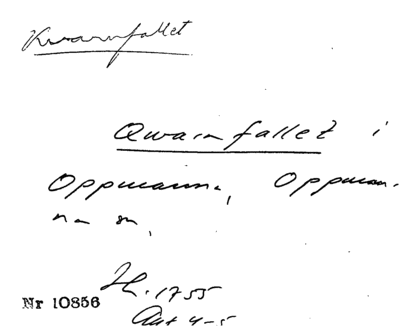 Kvarnfallet
Qwarnfallet i
Oppmanna, Oppman-
na sn,
Hk. 1755
Nr 10856
Akt 4-5